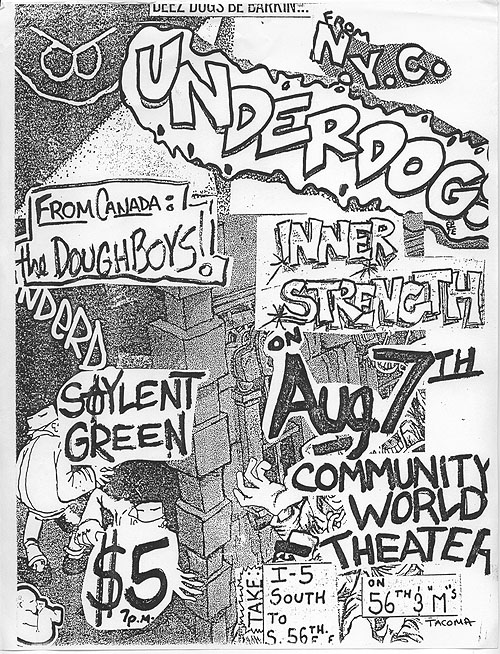 DEEZ DUGS BE BARKIN'...
FROM
N.Y.C.
UNDERDOG
FROM CANADA:
the DOUGHBOYS!!
INNER
STRENGTH
NDERD
ON
Aug. 7TH
SOYLENT
GREEN
COMMUNITY
WORLD
THEATER
$5
7 P.M.
TAKE
I-5
SOUTH
TO
S. 56TH.
ON
56TH 3 "M"'S
TACOMA